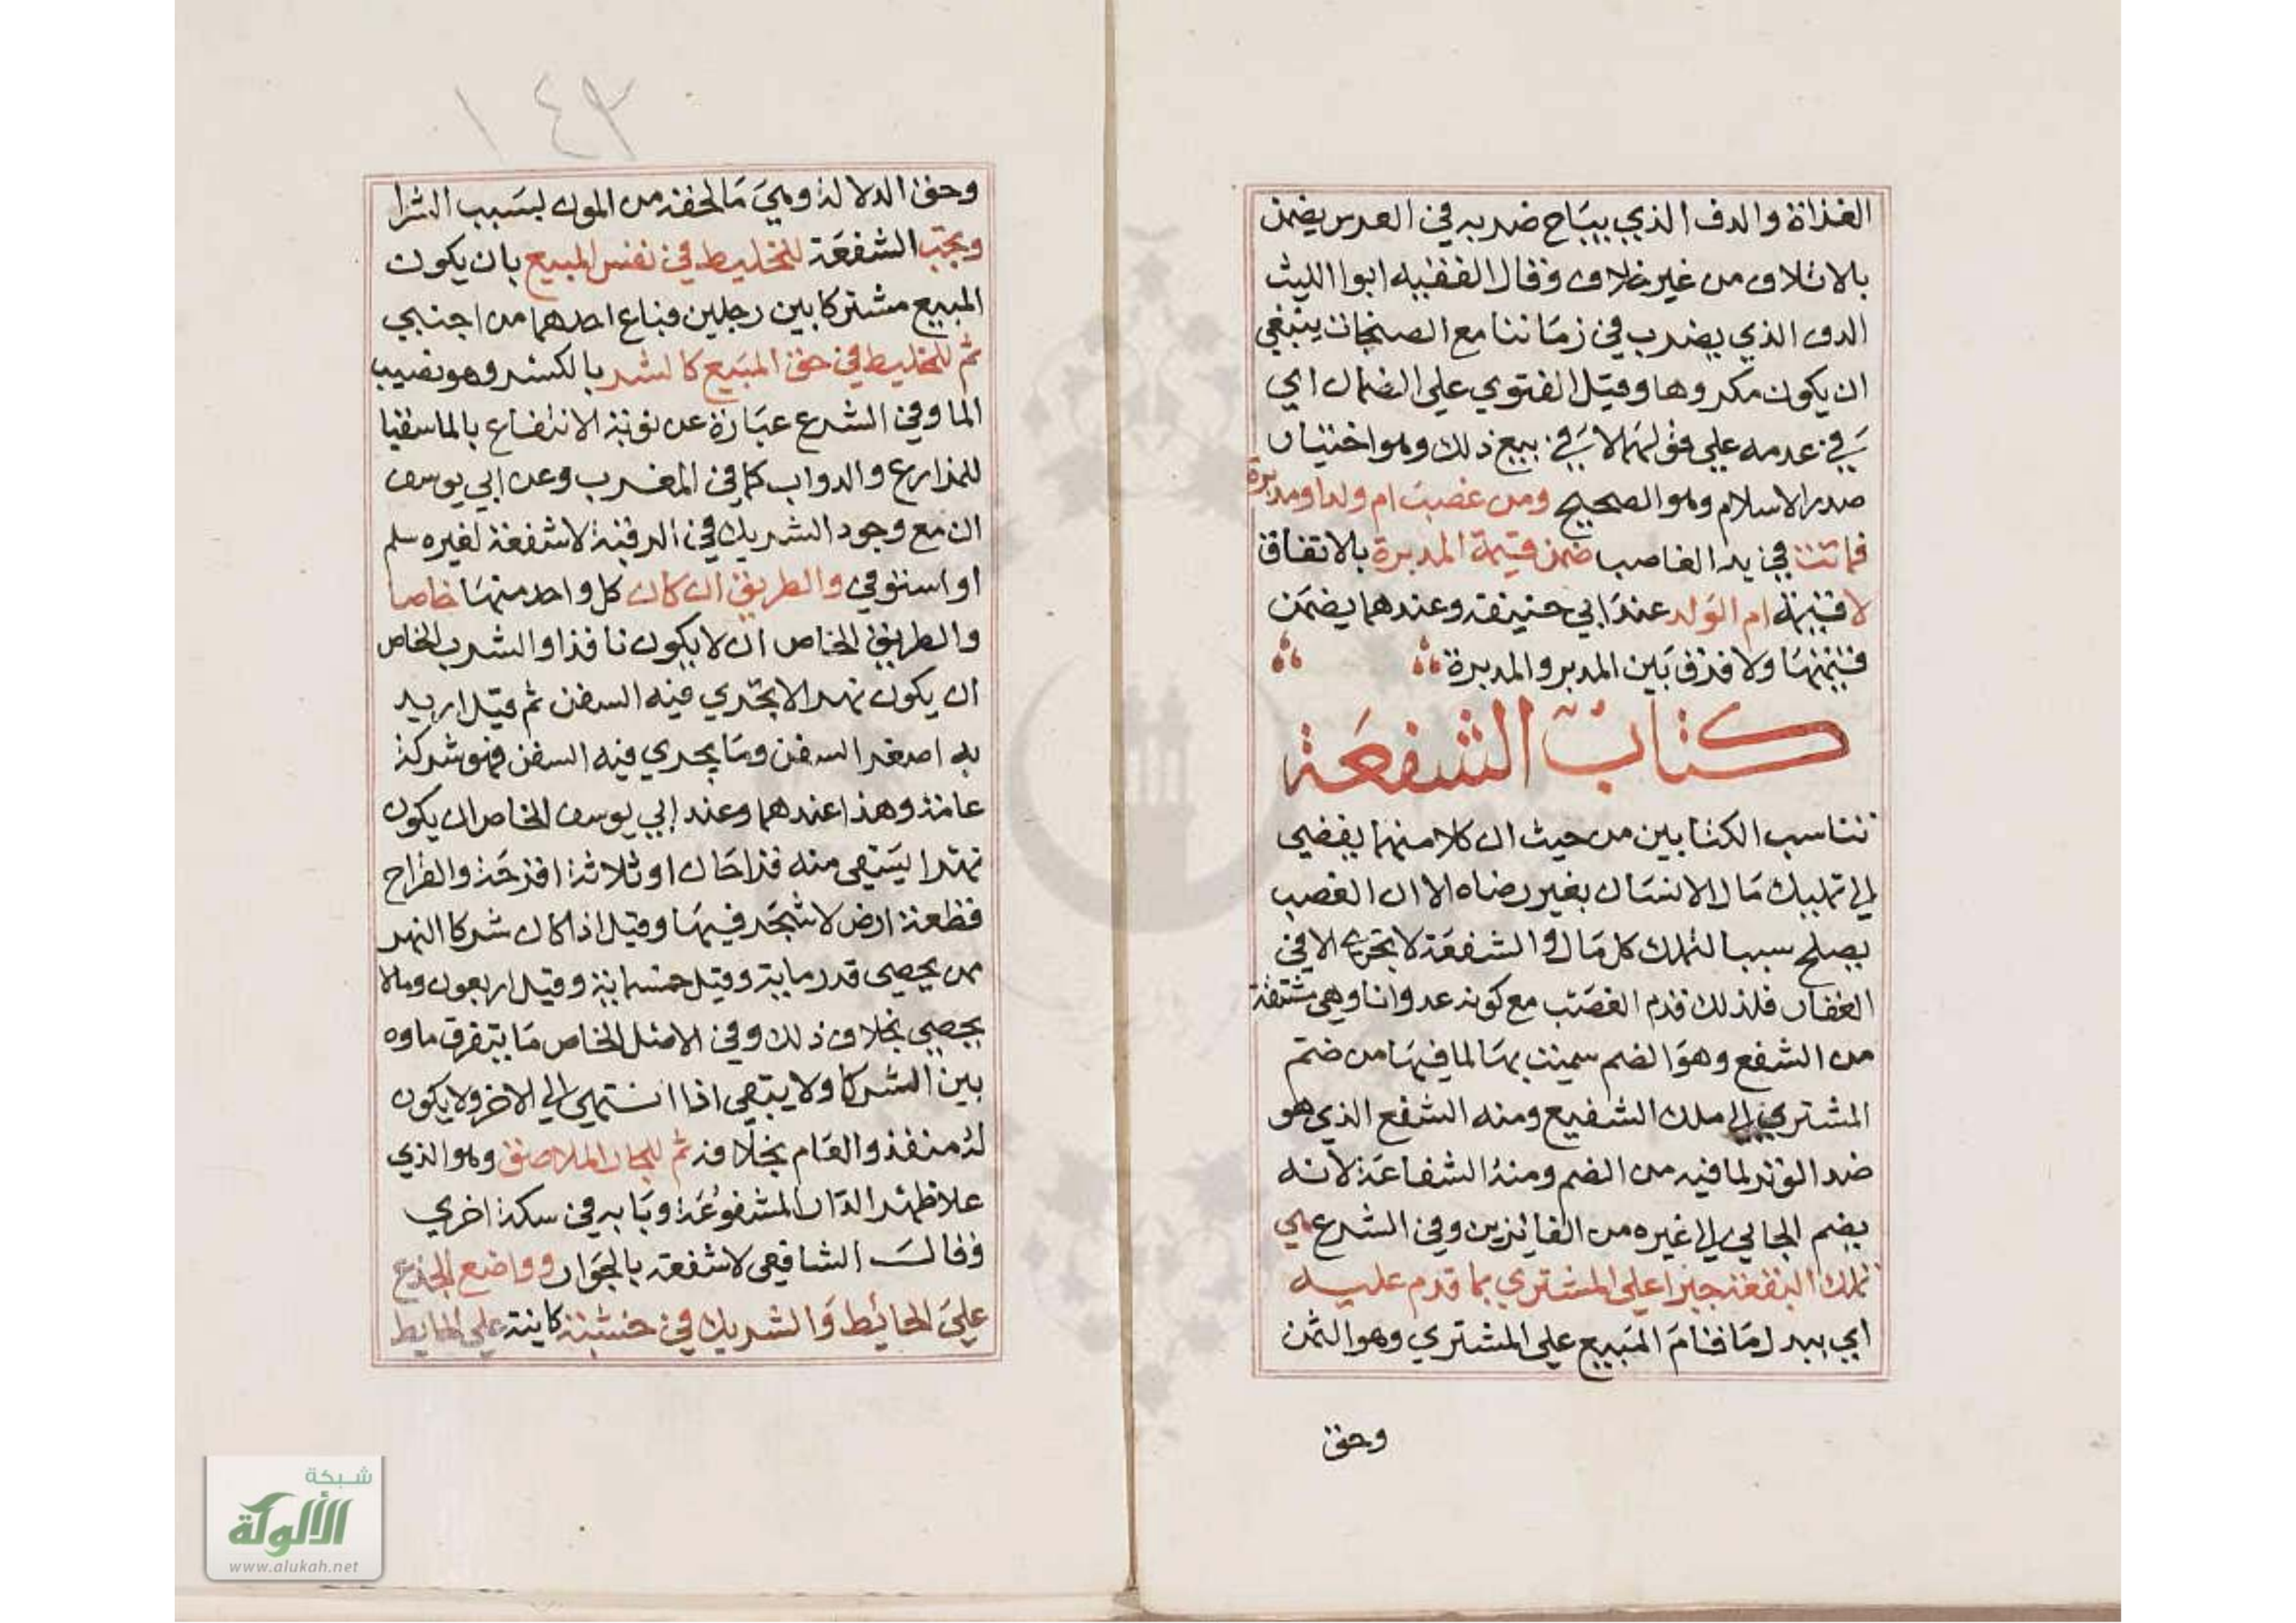 الغزاة والدف الذي يباح ضربه في العرس يضمن
بالاتلاف من غير خلاف وقال الفقيه ابوا الليث
الدف الذي يضرب في زماننا مع الصنجات ينبغي
ان يكون مكروها وقيل الفتوي علي الضمان اي
في عدمه علي قولهما لا في بيع ذلك وهو اختيار
صدر الاسلام وهو الصحيح ومن غصب ام ولد او مدبرة
فماتت في يد الغاصب ضمن قيمة المدبرة بالاتفاق
لا قيمة ام الولد عند ابي حنيفة وعندهما يضمن
قيمتها ولا فرق بين المدبر والمدبرة
كتاب الشفعة
تناسب الكتابين من حيث ان كلا منهما يفضي
الي تمليك مال الانسان بغير رضاه الا ان الغصب
يصلح سببا لتملك كل مال والشفعة لا تجري الا في
العقار فلذلك قدم الغصب مع كونه عدوانا وهي مشتقة
من الشفع وهو الضم سميت بها لما فيها من ضم
المشتري الي ملك الشفيع ومنه الشفع الذي هو
ضد الوتر لما فيه من الضم ومنه الشفاعة لانه
يضم الجاني الي غيره من الفايزين وفي الشرع هي
تملك البقعة جبرا علي المشتري بما قدم عليه
اي ببدل ما قام المبيع علي المشتري وهو الثمن
وحق
١٤٣
وحق الدلالة وهي ما لحقه من المون بسبب الشرا
وتجب الشفعة للخليط في نفس المبيع بان يكون
المبيع مشتركا بين رجلين فباع احدهما من اجنبي
ثم للخليط في حق المبيع كالشرب بالكسر وهو نصيب
الما وفي الشرع عبارة عن نوبة الانتفاع بالما سقيا
للمزارع والدواب كما في المغرب وعن ابي يوسف
ان مع وجود الشريك في الرقبة لا شفعة لغيره سلم
او استوفي والطريق ان كان كل واحد منهما خاصا
والطريق الخاص ان لا يكون نافذا والشرب الخاص
ان يكون نهرا لا تجري فيه السفن ثم قيل اريد
به اصغر السفن وما يجري فيه السفن فهو شركة
عامة وهذا عندهما وعند ابي يوسف الخاص ان يكون
نهرا يستقي منه قراحان او ثلاثة اقرحة والقراح
قطعة ارض لا شجر فيها وقيل اذا كان شركا النهر
ممن يحصي قدر ماية وقيل خمسماية وقيل اربعون وما لا
يحصي بخلاف ذلك وفي الاصل الخاص ما يتفرق ماوه
بين الشركا ولا يبقي اذا انتهي الي الاخر ولا يكون
له منفذ والعام بخلافه ثم للجار الملاصق وهو الذي
علا ظهر الدار المشفوعة وبابه في سكة اخري
وقال الشافعي لا شفعة بالجوار وواضع الجذع
علي الحائط والشريك في خشبة كاينة علي الحايط
شبكة
الألوكة
www.alukah.net